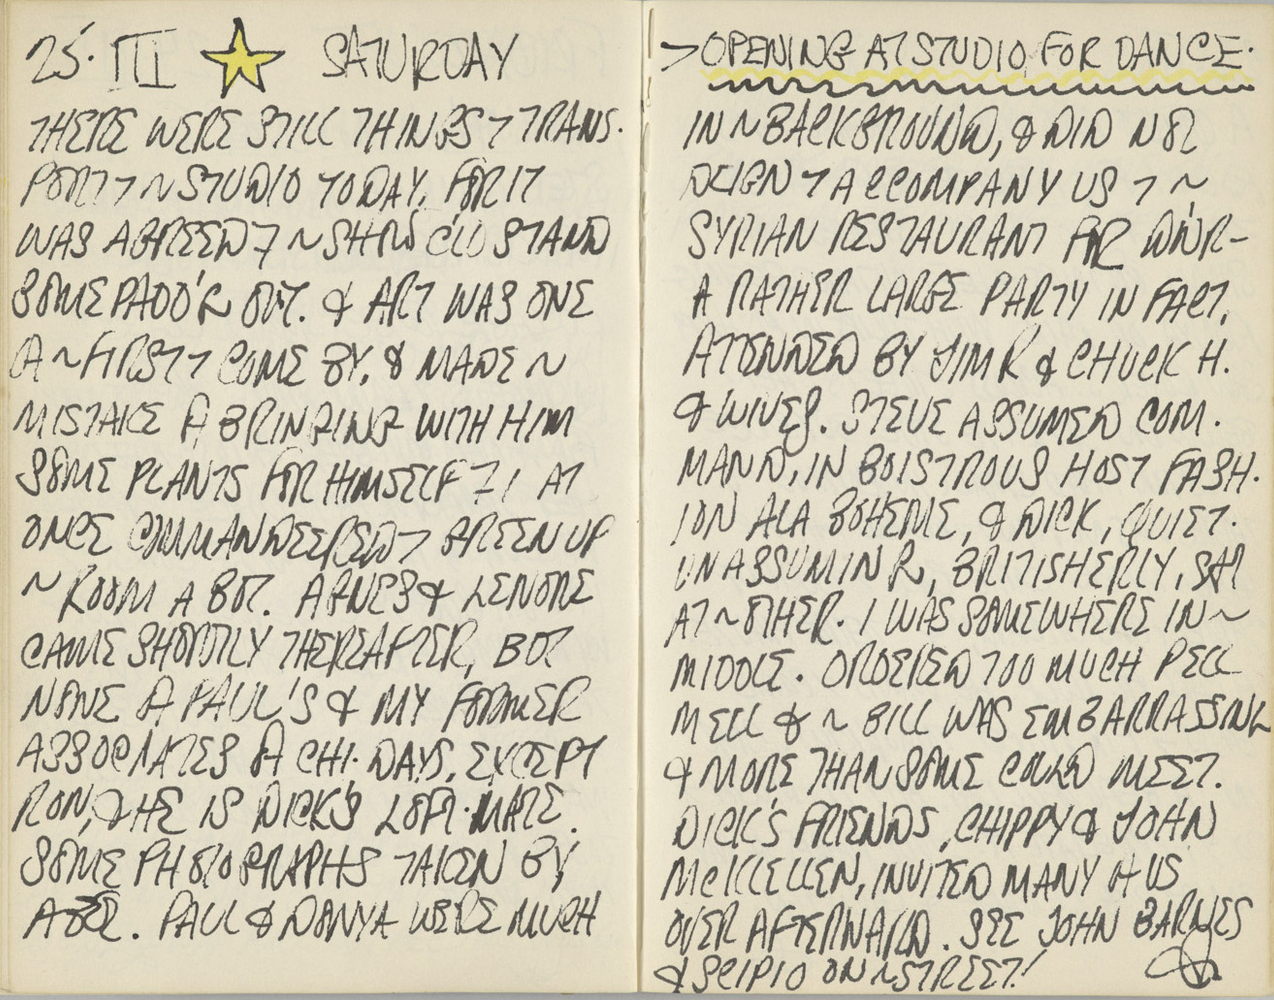 25. III ☆ SATURDAY
THERE WERE STILL THINGS 7 TRANS.
PORT 7 ~ STUDIO TODAY, FOR IT
WAS AGREED 7 ~ SHOW C'LD STAND
SOME PADD'G OUT. & ART WAS ONE
A ~ FIRST 7 COME BY, & MADE ~
MISTAKE A BRINGING WITH HIM
SOME PLANTS FOR HIMSELF 7 I AT
ONCE COMMANDEERED 7 GREEN UP
~ ROOM A BIT. AGNES & LENORE
CAME SHORTLY THEREAFTER, BUT
NONE A PAUL'S & MY FORMER
ASSOCIATES A CHI. DAYS, EXCEPT
RON, & HE IS DICK'S LOFT-MATE.
SOME PHOTOGRAPHS TAKEN BY
PAUL & DANYA WERE MUCH
> OPENING AT STUDIO FOR DANCE.
IN ~ BACKGROUND, & DID NOT
DEIGN 7 ACCOMPANY US 7 ~
SYRIAN RESTAURANT FOR DIN'R-
A RATHER LARGE PARTY IN FACT,
ATTENDED BY JIM R & CHUCK H.
& WIVES. STEVE ASSUMED COM.
MAND, IN BOISTROUS HOST FASH.
ION ALA BOHEME, & DICK, QUIET.
UNASSUMING, BRITISHERLY, SAT
AT ~ OTHER. I WAS SOMEWHERE IN ~
MIDDLE. ORDERED TOO MUCH PELL
MELL & ~ BILL WAS EMBARRASSING
& MORE THAN SOME COULD MEET.
DICK'S FRIENDS, CHIPPY & JOHN
McKLELLEN, INVITED MANY A US
OVER AFTERWARD. SEE JOHN BARNES
& SCIPIO ON ~ STREET!